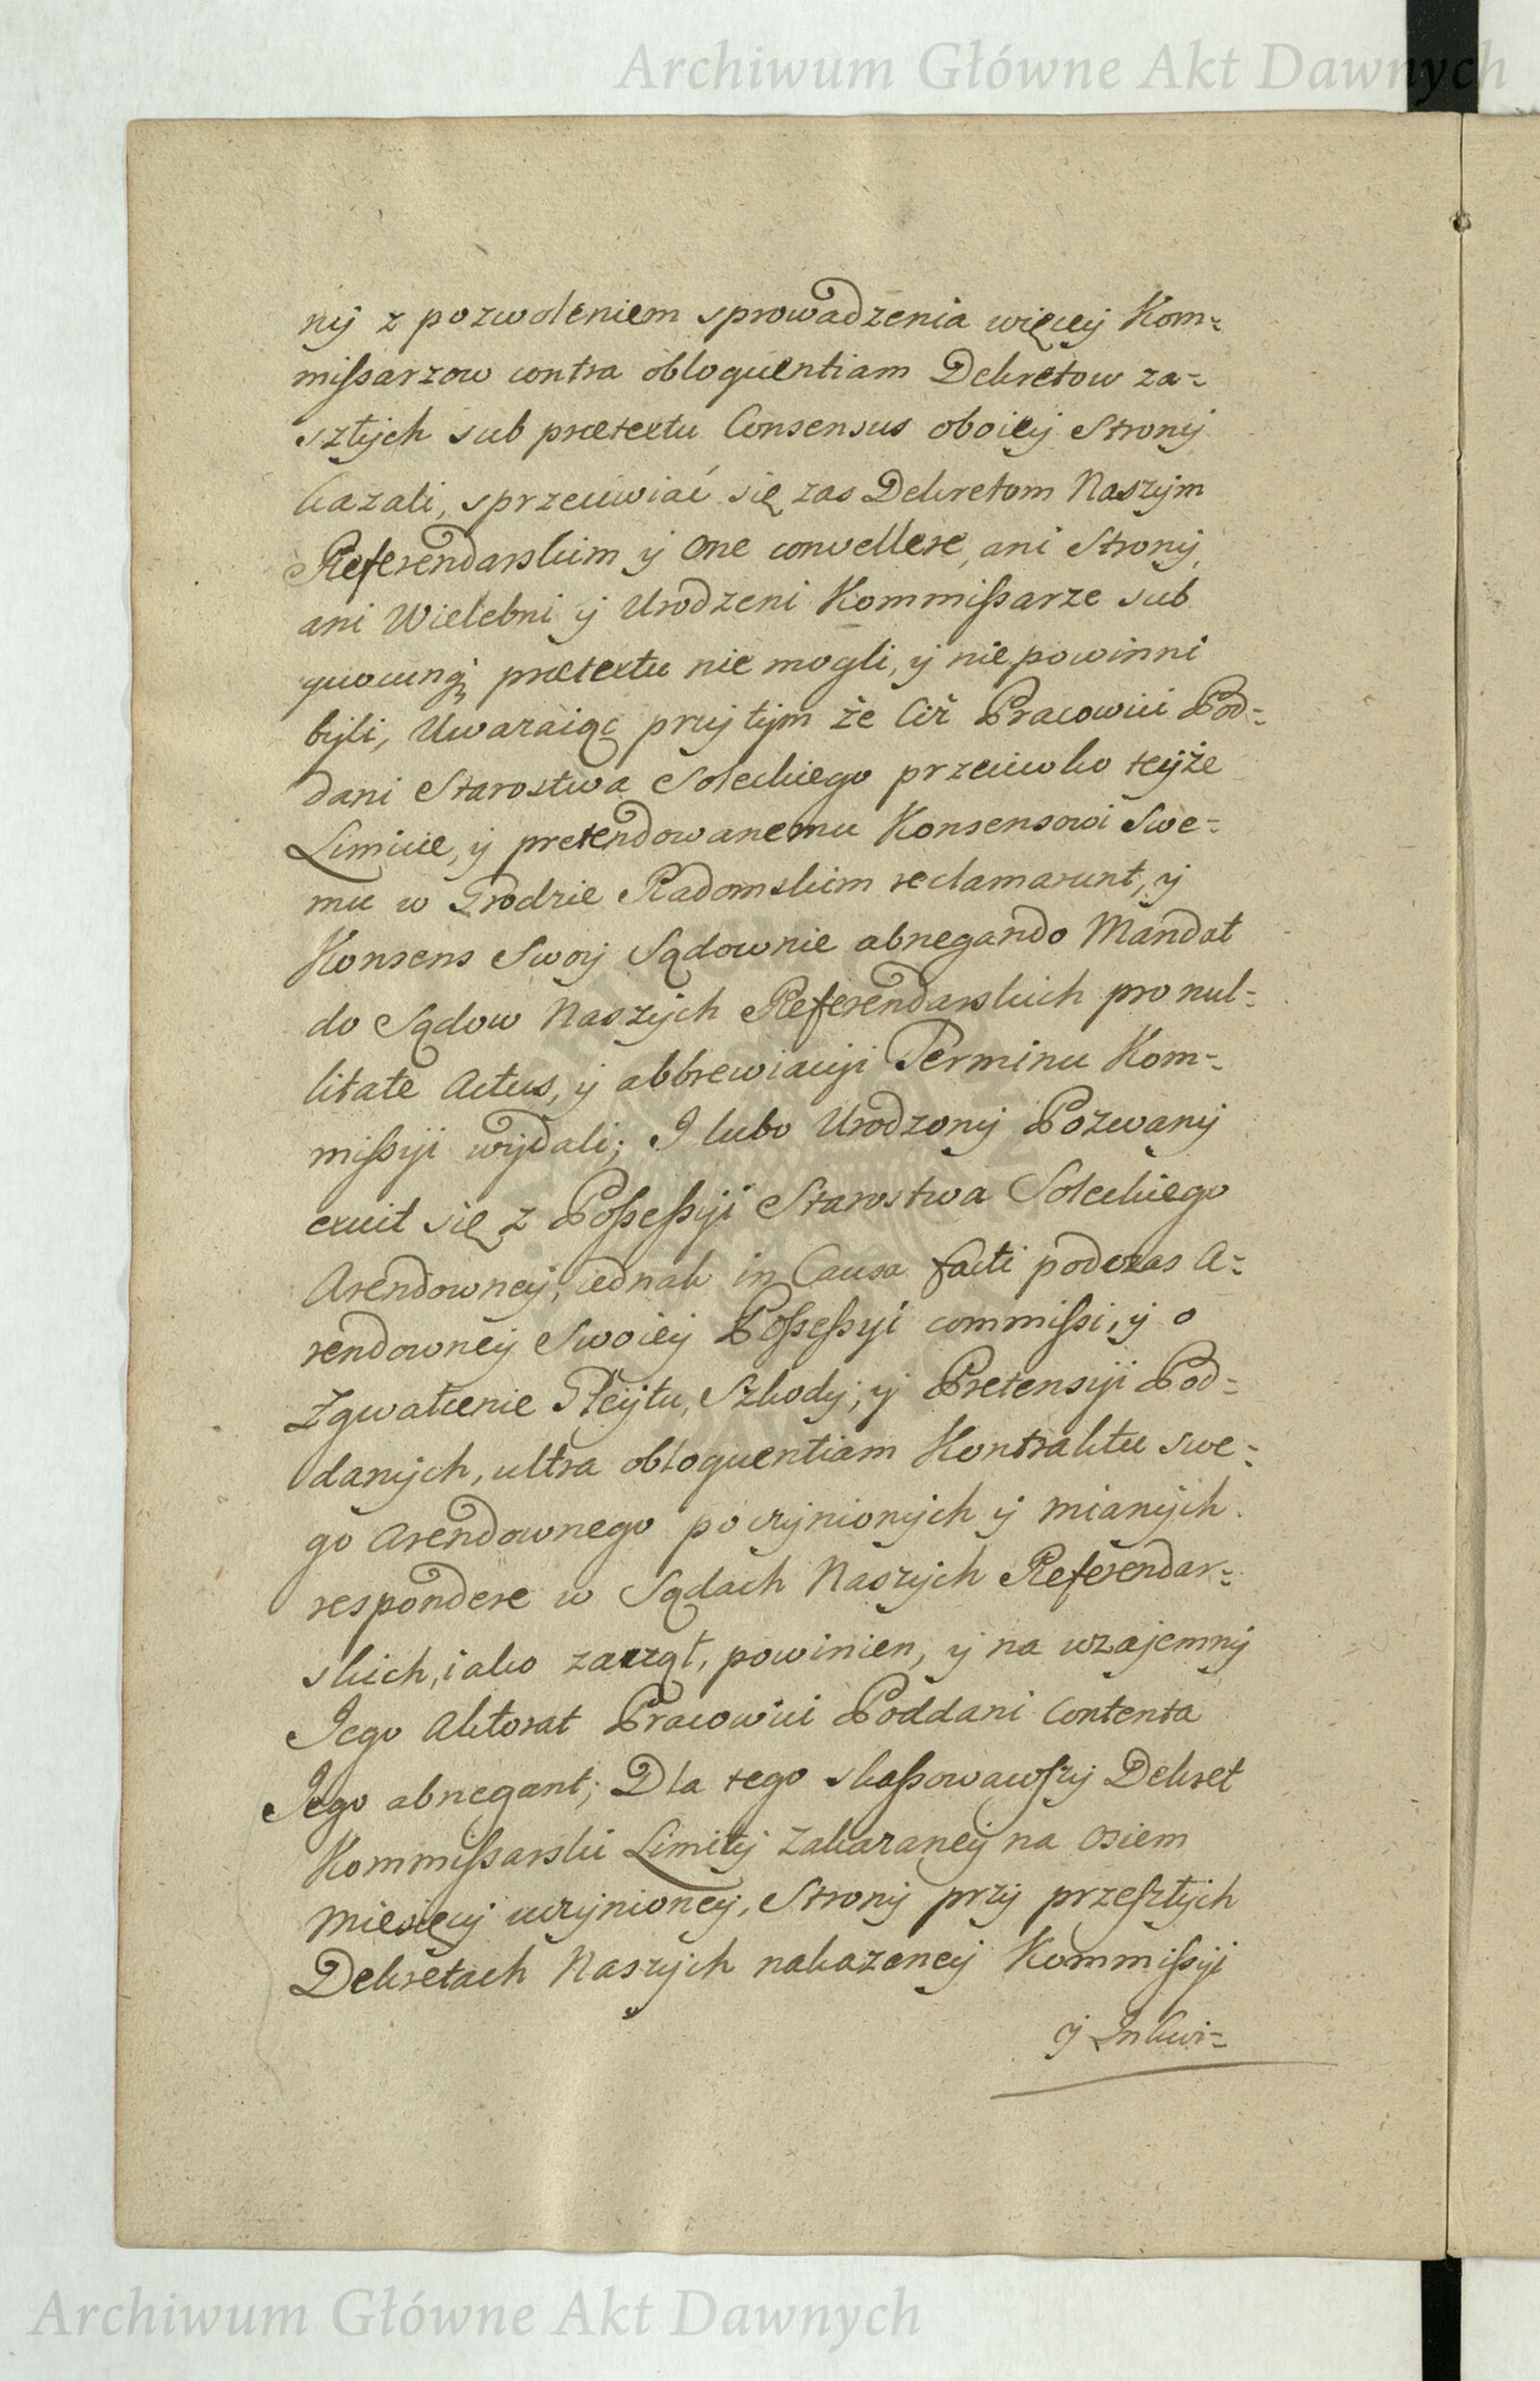 Archiwum Główne Akt Dawnych
ny z pozwoleniem sprowadzenia więcey Kom=
missarzow contra obloquentiam Dekretow za=
szłych sub praetextu Consensus oboiey Strony
kazali, sprzeciwiać się zas Dekretom Naszym
Referendarskim y one convellere, ani Strony,
ani Wielebni y Urodzeni Kommissarze sub
quocunq praetextu nie mogli, y nie powinni
byli, Uwazaiąc przy tym że Ciż Pracowici Pod=
dani Starostwa Soleckiego przeciwko teyże
Limicie, y pretendowanemu Konsensowi Swe=
mu w Grodzie Radomskim reclamarunt, y
Konsens Swoy Sądownie abnegando Mandat
do Sądow Naszych Referendarskich pro nul=
litate Actus, y abbrewiacyi Terminu Kom=
missyi wydali; I lubo Urodzony Pozwany
exuit się z Possessyi Starostwa Soleckiego
Arendowney, iednak in Causa facti podczas A=
rendowney Swoiey Possessyi commissi, y o
Zgwałcenie Gleytu, Szkody, y Pretensyi Pod=
danych, ultra obloquentiam Kontraktu swe=
go Arendownego poczynionych y mianych
respondere w Sądach Naszych Referendar=
skich, iako zaczął, powinien, y na wzajemny
Jego Aktorat Pracowici Poddani Contenta
Jego abnegant; Dla tego skassowawszy Dekret
Kommissarski Limity Zakazaney na Osiem
Miesięcy uczynioney, Strony przy przeszłych
Dekretach Naszych nakazaney Kommissyi
y Inkwi=
Archiwum Główne Akt Dawnych